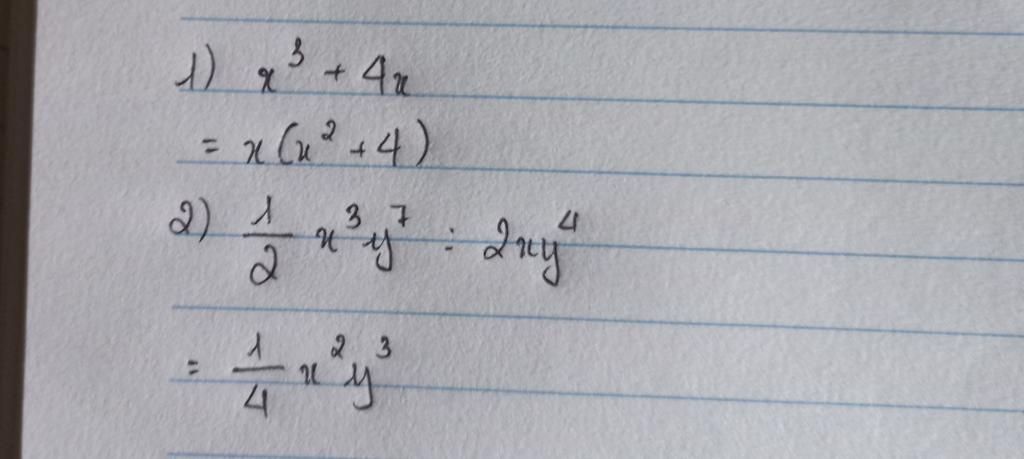 1) x³ + 4x
= x(x² + 4)
2) 1/2 x³y⁷ : 2xy⁴
= 1/4 x²y³